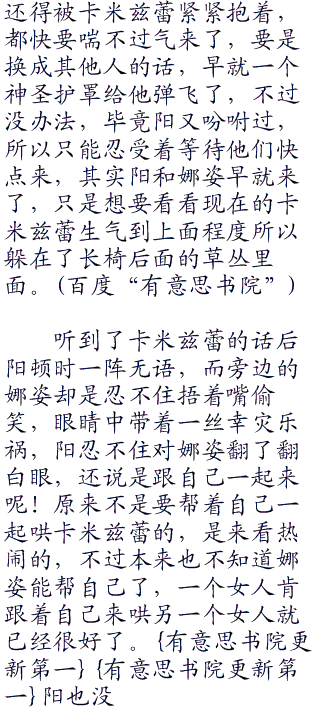 还得被卡米兹蕾紧紧抱着，
都快要喘不过气来了，要是
换成其他人的话，早就一个
神圣护罩给他弹飞了，不过
没办法，毕竟阳又吩咐过，
所以只能忍受着等待他们快
点来，其实阳和娜姿早就来
了，只是想要看看现在的卡
米兹蕾生气到上面程度所以
躲在了长椅后面的草丛里
面。(百度“有意思书院”)
听到了卡米兹蕾的话后
阳顿时一阵无语，而旁边的
娜姿却是忍不住捂着嘴偷
笑，眼睛中带着一丝幸灾乐
祸，阳忍不住对娜姿翻了翻
白眼，还说是跟自己一起来
呢！原来不是要帮着自己一
起哄卡米兹蕾的，是来看热
闹的，不过本来也不知道娜
姿能帮自己了，一个女人肯
跟着自己来哄另一个女人就
已经很好了。{有意思书院更
新第一}{有意思书院更新第
一}阳也没